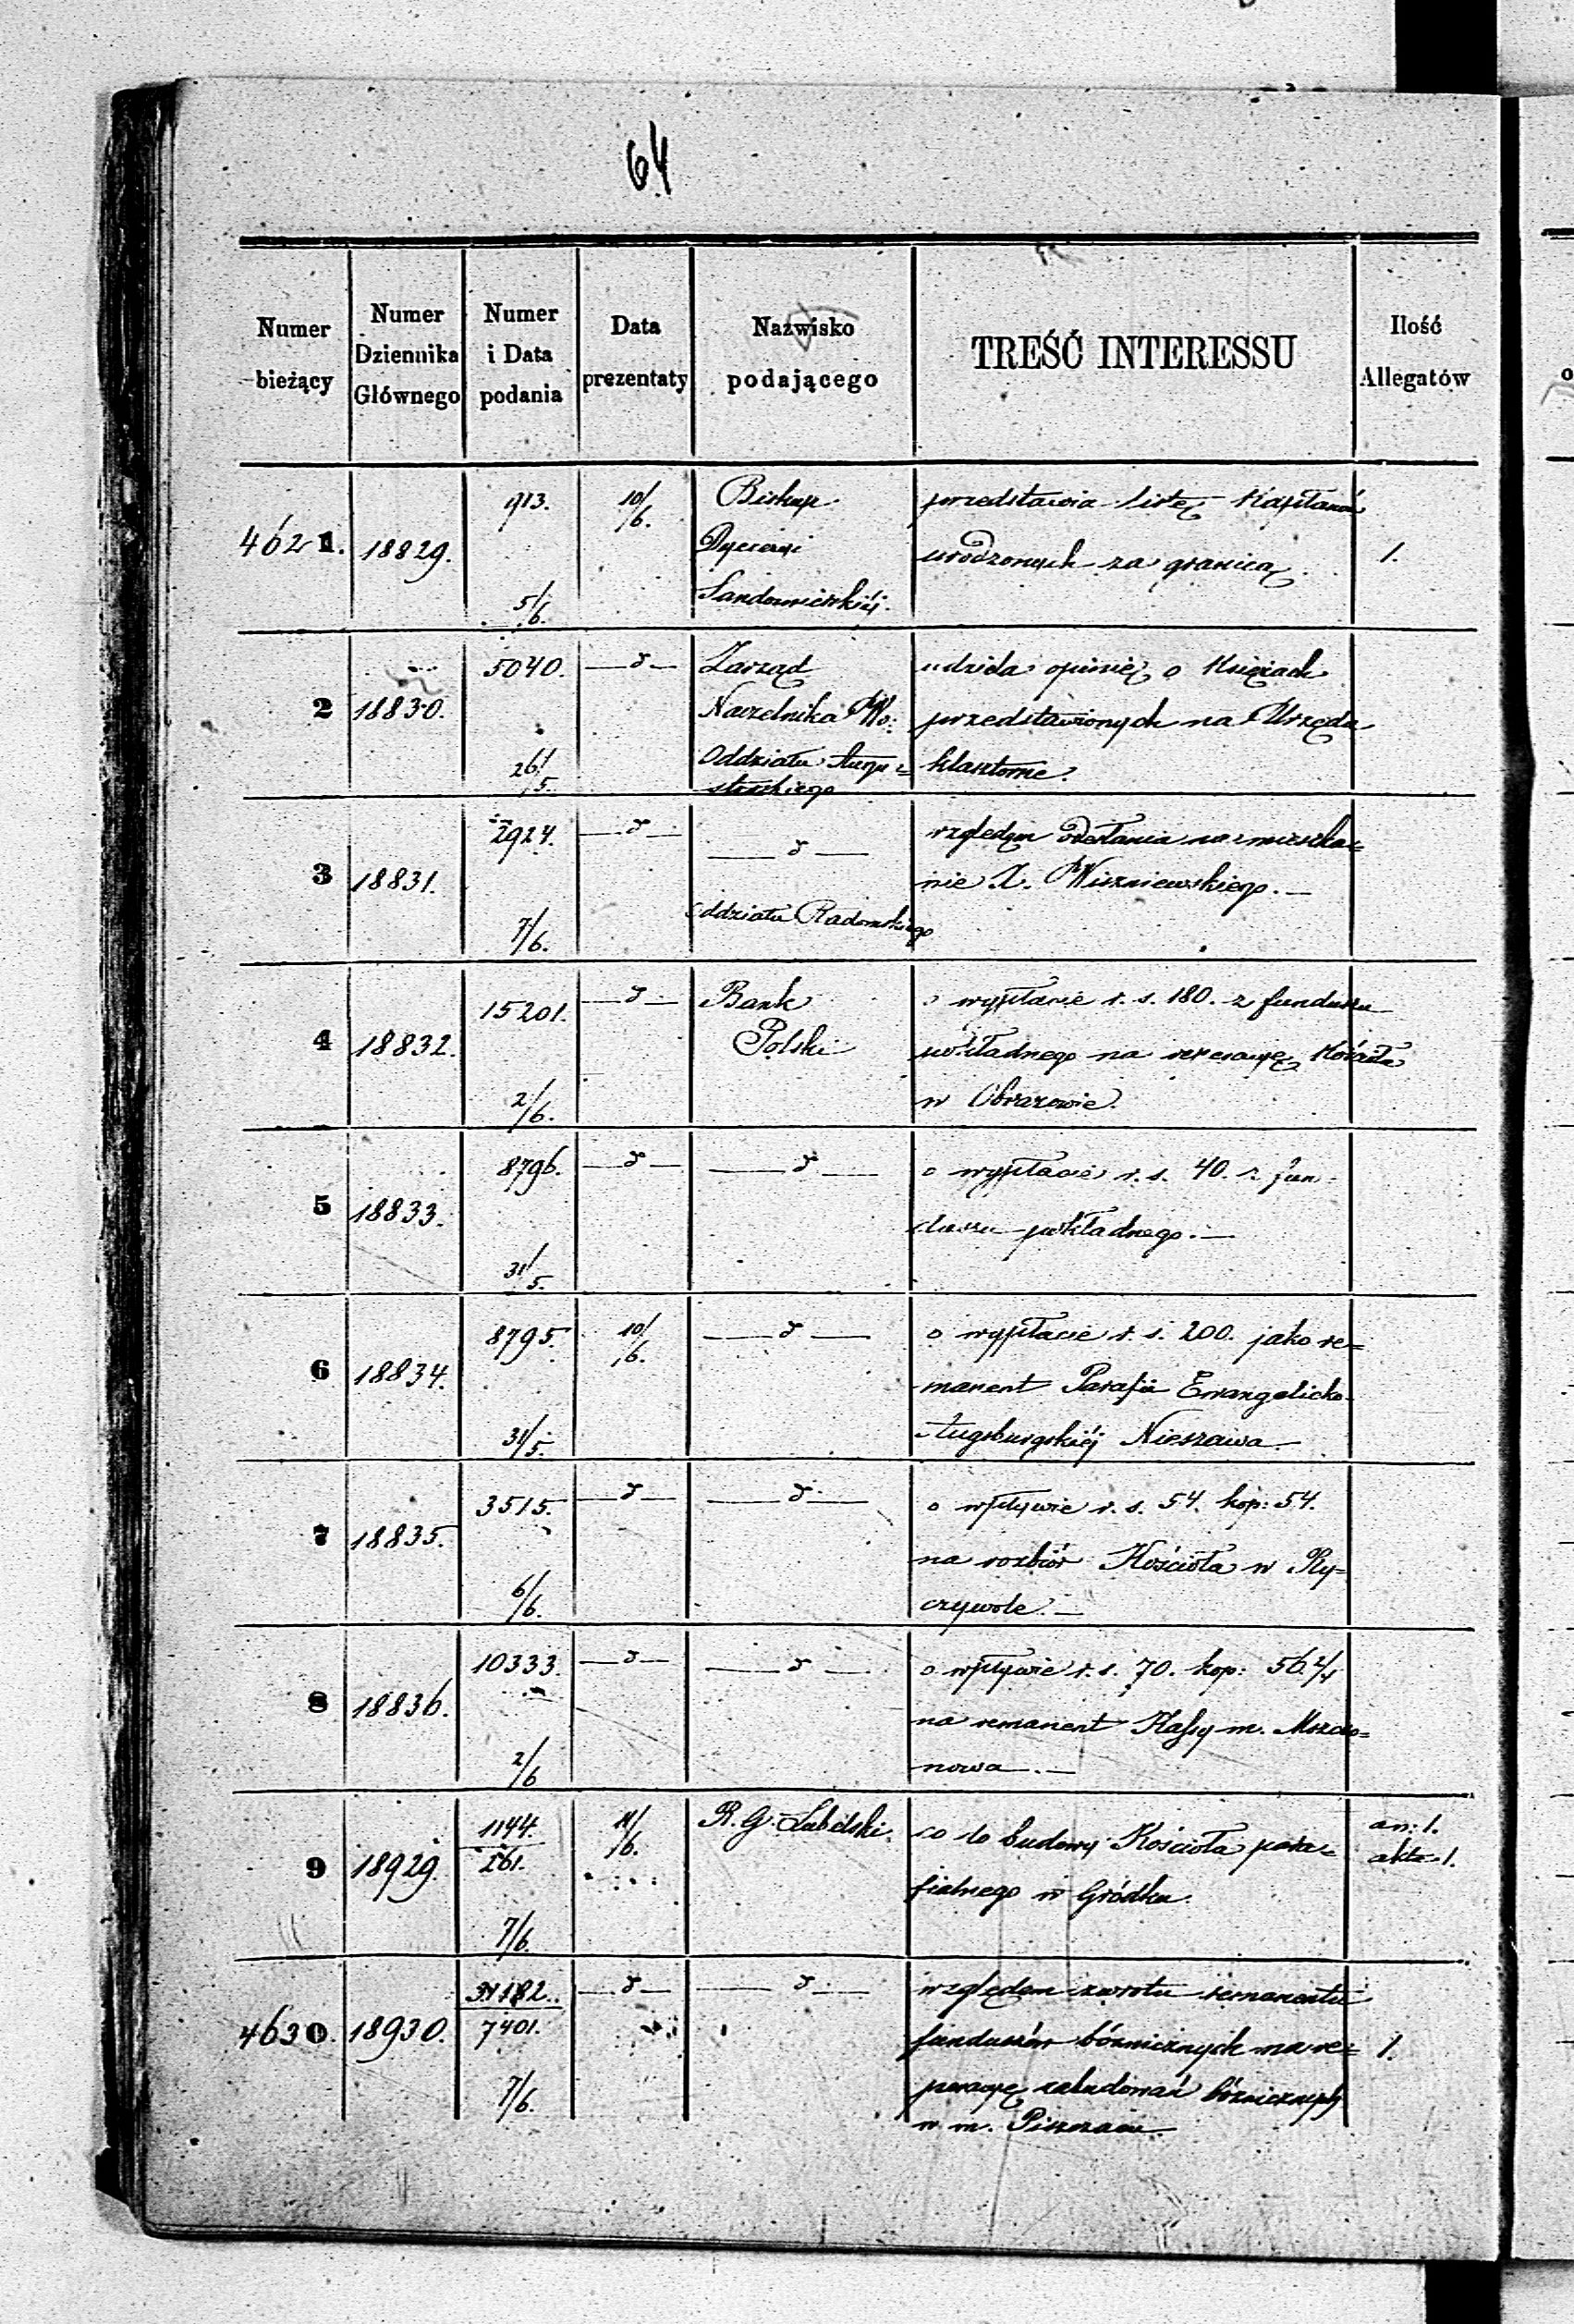 64
Numer bieżący
Numer Dziennika Głównego
Numer i Data podania
Data prezentaty
Nazwisko podającego
TREŚĆ INTERESSU
Ilość Allegatów
4621. 18829. 913. 5/6. 10/6. Biskup Dyecezyi Sandomierskiéj. 1.
przedstawia listę Kapłanów
urodzonych za granicą.
2 18830. 5040. 26/5. —d— Zarząd
Naczelnika Wo:
Oddziału Augu=
stowskiego
udziela opinię o Księżach
przedstawionych na Urzęda
klasztorne.
3 18831. 2924. 7/6. —d— —d—
Oddziału Radomskiego
względem odesłania na zmieszka=
nie X. Wiszniewskiego.—
4 18832. 15201. 2/6. —d— Bank
Polski
o wypłacie r. s. 180. z funduszu
na Kościoła
w Obrazowie.
5 18833. 8796. 31/5. —d— —d—
o wypłacie r. s. 40. z fun=
duszu pokładnego.—
6 18834. 8795. 31/5. 10/6. —d—
o wypłacie r. s. 200. jako re=
manent Parafii Ewangelicko
Augsburgskiéj Nieszawa—
7 18835. 3515. 6/6. —d— —d—
o wpływie r. s. 54. kop: 54.
na rozbiór Kościoła w Ry=
czywole.—
8 18836. 10333. 2/6 —d— —d—
o wpływie r. s. 70. kop: 56
na remanent Kassy m. Mszczo=
nowa.—
9 18929. 1144./261. 7/6. 11/6. R. G. Lubelski. an: 1.
akta 1.
co do budowy Kościoła para=
fialnego w Gródku.
4630. 18930. 31182./7401. 7/6. —d— —d— 1.
względem zwrotu remanentu
funduszów bóżnicznych na re=
peracyę zabudowań bóżnicznych
w m.